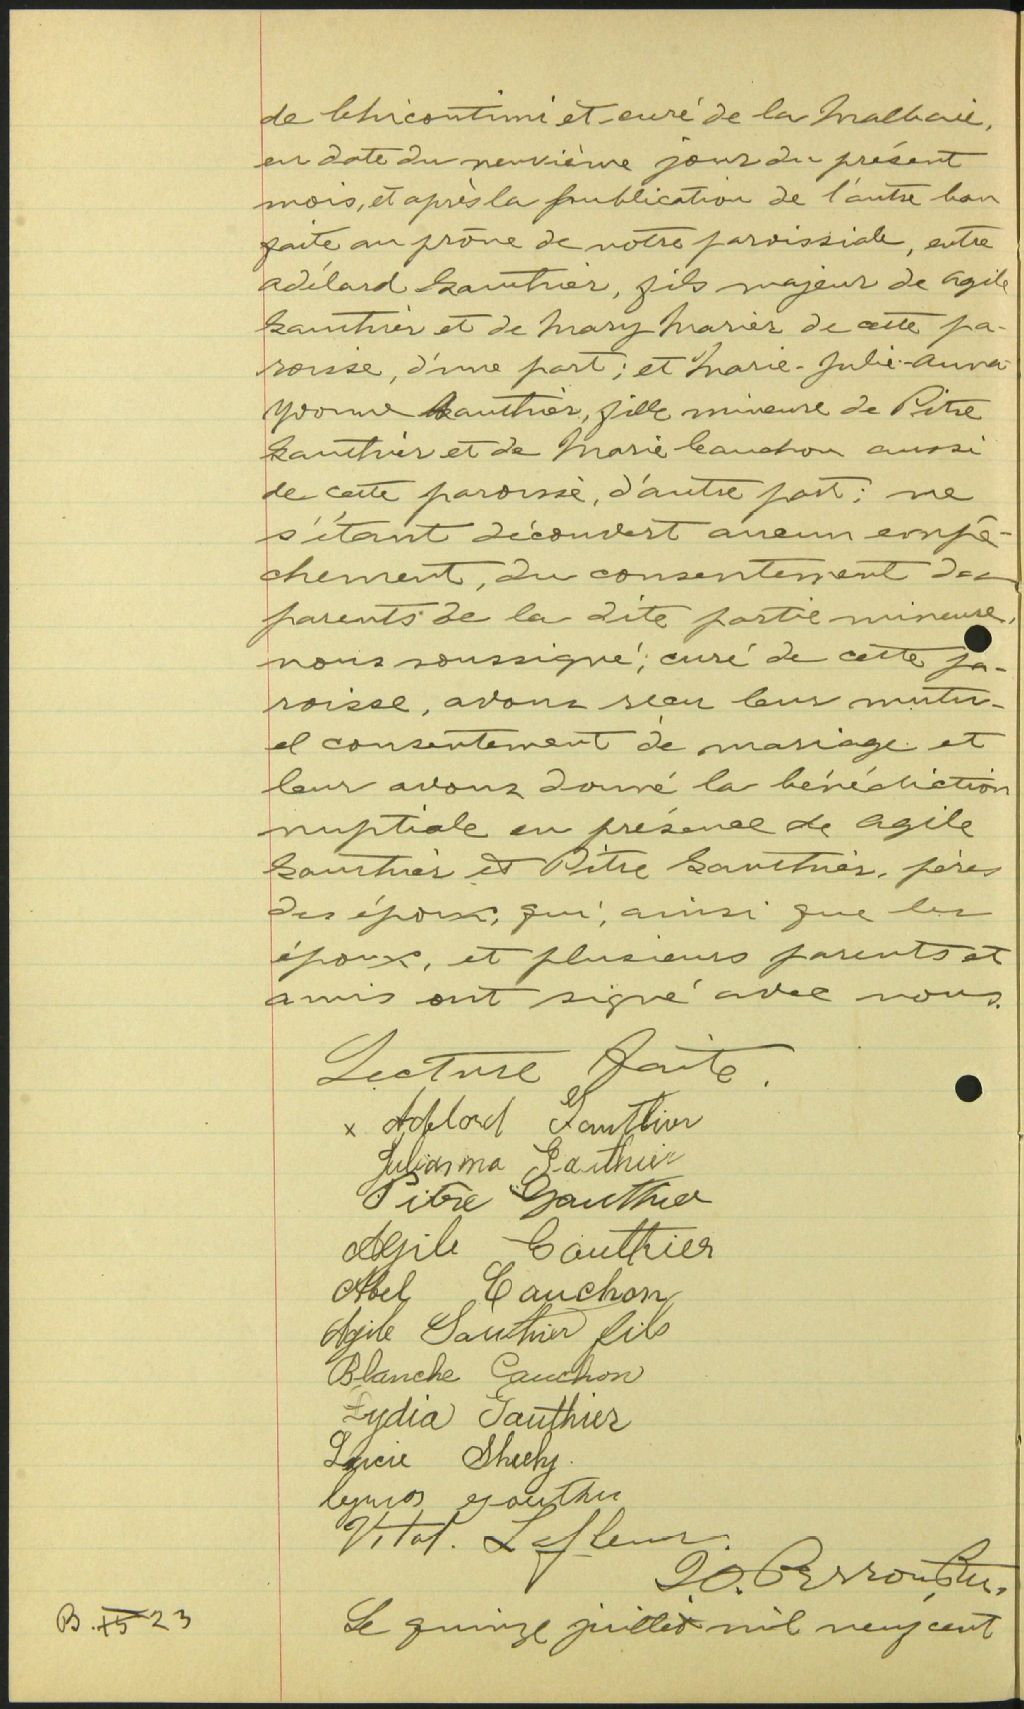 de Chicoutimi et curé de la Malbaie,
en date du neuvième jour du présent
mois, et après la publication de l'autre ban
faite au prône de notre paroissiale, entre
Adélard Gauthier, fils majeur de Agile
Gauthier et de Mary Marier de cette pa-
roisse, d'une part; et Marie-Julie-Anna
Yvonne Gauthier, fille mineure de Pitre
Gauthier et de Marie Cauchon aussi
de cette paroisse, d'autre part; ne
s'étant découvert aucun empê-
chement, du consentement des
parents de la dite partie mineure,
nous soussigné, curé de cette pa-
roisse, avons reçu leur mutu-
el consentement de mariage et
leur avons donné la bénédiction
nuptiale en présence de Agile
Gauthier et Pitre Gauthier, pères
des époux, qui, ainsi que les
époux, et plusieurs parents et
amis ont signé avec nous.
Lecture faite.
x Adelard Gauthier
Julianna Gauthier
Pitre Gauthier
Agile Gauthier
Abel Cauchon
Agile Gauthier fils
Blanche Cauchon
Lydia Gauthier
Lucie Sheehy
gauthier
Vital. Lafleur.
J.O. Perron Ptre.
B. 23
Le quinze juillet mil neuf cent